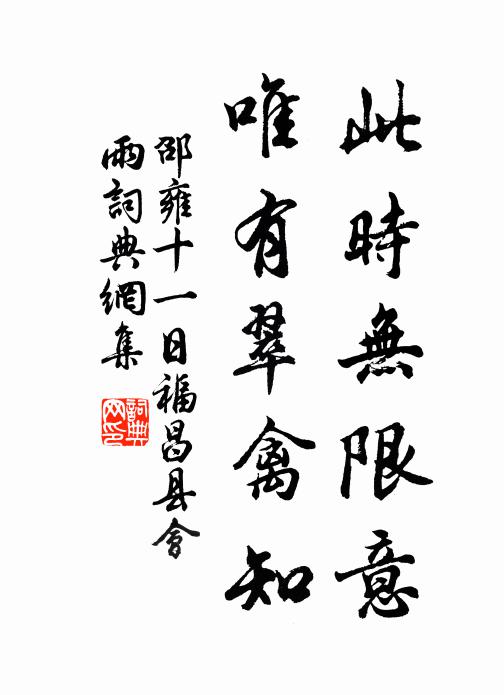 此時無限意
唯有翠禽知
邵雍十一日福昌县會
雨詞典網集
詞典
网印